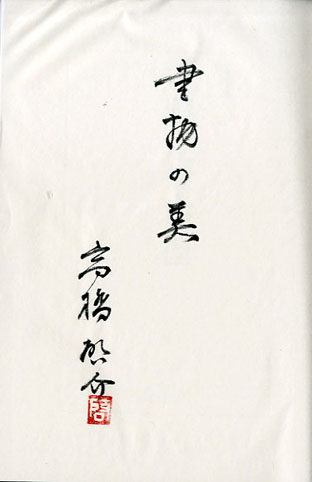 書物の美
高橋啓介
啓